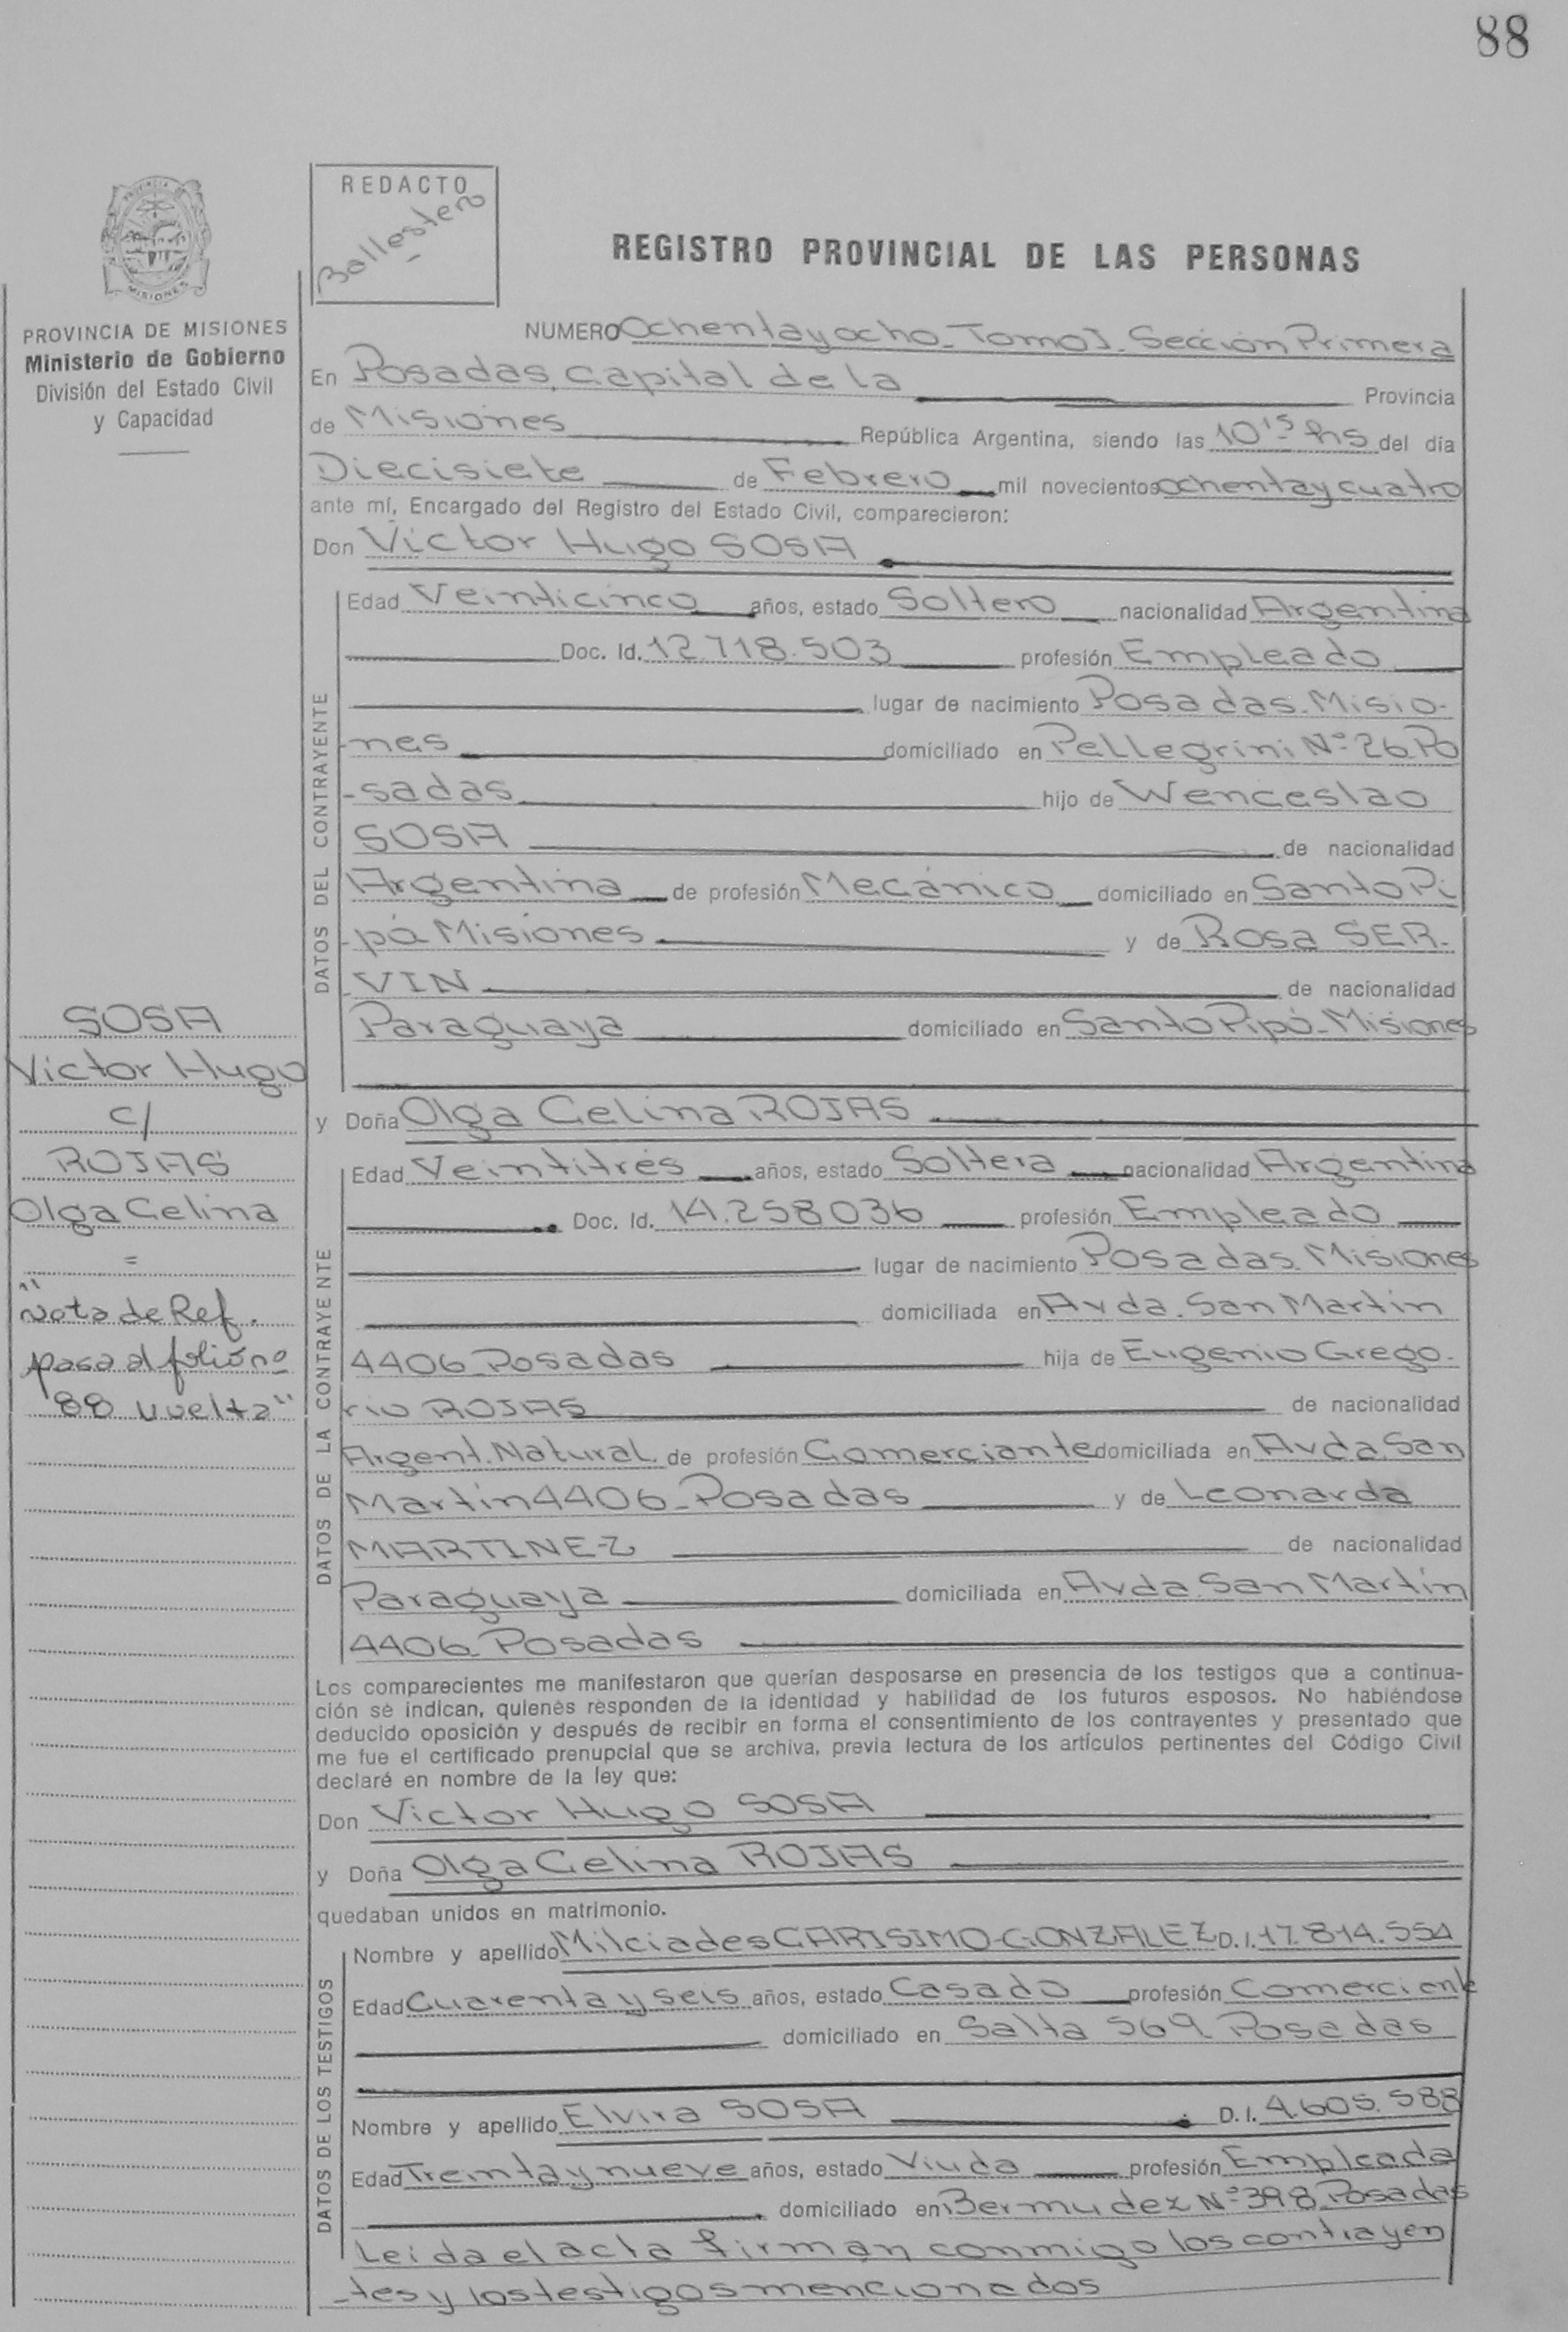 88
REDACTO
Ballestero
PROVINCIA DE
MISIONES
REGISTRO PROVINCIAL DE LAS PERSONAS
PROVINCIA DE MISIONES
Ministerio de Gobierno
División del Estado Civil
y Capacidad
NUMERO Ochenta y ocho_ Tomo I_ Sección Primera
En Posadas, Capital de la Provincia
de Misiones República Argentina, siendo las 10 15 hs del día
Diecisiete de Febrero mil novecientos ochenta y cuatro
ante mí, Encargado del Registro del Estado Civil, comparecieron:
Don Victor Hugo SOSA
DATOS DEL CONTRAYENTE
Edad Veinticinco años, estado Soltero nacionalidad Argentina
Doc. Id. 12.718.503 profesión Empleado
lugar de nacimiento Posadas_Misio-
-nes domiciliado en Pellegrini Nº 26_Po
-sadas hijo de Wenceslao
SOSA de nacionalidad
Argentina de profesión Mecánico domiciliado en Santo Pi
-pó Misiones y de Rosa SER-
-VIN de nacionalidad
Paraguaya domiciliado en Santo Pipó_Misiones
y Doña Olga Celina ROJAS
DATOS DE LA CONTRAYENTE
Edad Veintitrés años, estado Soltera nacionalidad Argentina
Doc. Id. 14.258036 profesión Empleado
lugar de nacimiento Posadas_Misiones
domiciliada en Avda. San Martin
4406_Posadas hija de Eugenio Grego-
rio ROJAS de nacionalidad
Argent. Natural. de profesión Comerciante domiciliada en Avda. San
Martin 4406_Posadas y de Leonarda
MARTINEZ de nacionalidad
Paraguaya domiciliada en Avda. San Martin
4406_Posadas
Los comparecientes me manifestaron que querían desposarse en presencia de los testigos que a continua-
ción se indican, quienes responden de la identidad y habilidad de los futuros esposos. No habiéndose
deducido oposición y después de recibir en forma el consentimiento de los contrayentes y presentado que
me fue el certificado prenupcial que se archiva, previa lectura de los artículos pertinentes del Código Civil
declaré en nombre de la ley que:
Don Victor Hugo SOSA
y Doña Olga Celina ROJAS
quedaban unidos en matrimonio.
DATOS DE LOS TESTIGOS
Nombre y apellido Milciades CARISIMO-GONZALEZ D.I. 17.814.554
Edad Cuarenta y seis años, estado Casado profesión Comerciante
domiciliado en Salta 569_Posadas
Nombre y apellido Elvira SOSA D.I. 4.605.588
Edad Treinta y nueve años, estado Viuda profesión Empleada
domiciliado en Bermudez Nº 398_Posadas
Leida el acta firman conmigo los contrayen
-tes y los testigos mencionados
SOSA
Victor Hugo
c/
ROJAS
Olga Celina
=
"Nota de Ref.
pasa al folio nº
88 vuelta"